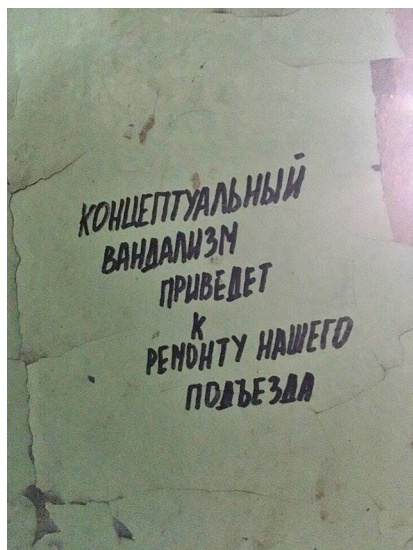 КОНЦЕПТУАЛЬНЫЙ
ВАНДАЛИЗМ
ПРИВЕДЕТ
К
РЕМОНТУ НАШЕГО
ПОДЪЕЗДА